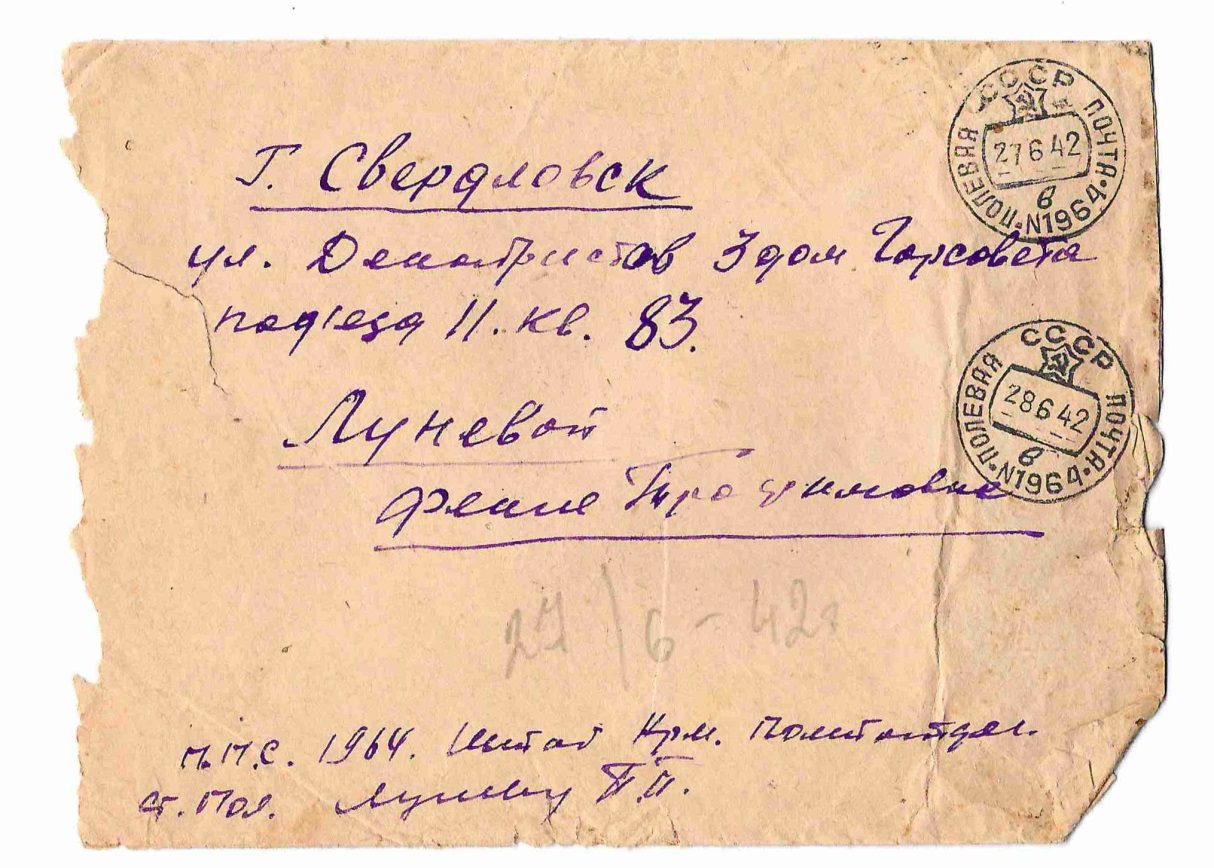 СССР ПОЛЕВАЯ ПОЧТА
27 6 42
в
N1964
Г. Свердловск
ул. Декабристов 3 дом Горсовета
под'езд 11. кв. 83.
СССР ПОЛЕВАЯ ПОЧТА
28 6 42
в
N1964
Луневой
Фение Трофимовне
27/6-42г
П.П.С. 1964. Штаб Политотдел.
ст. Луневу П.П.